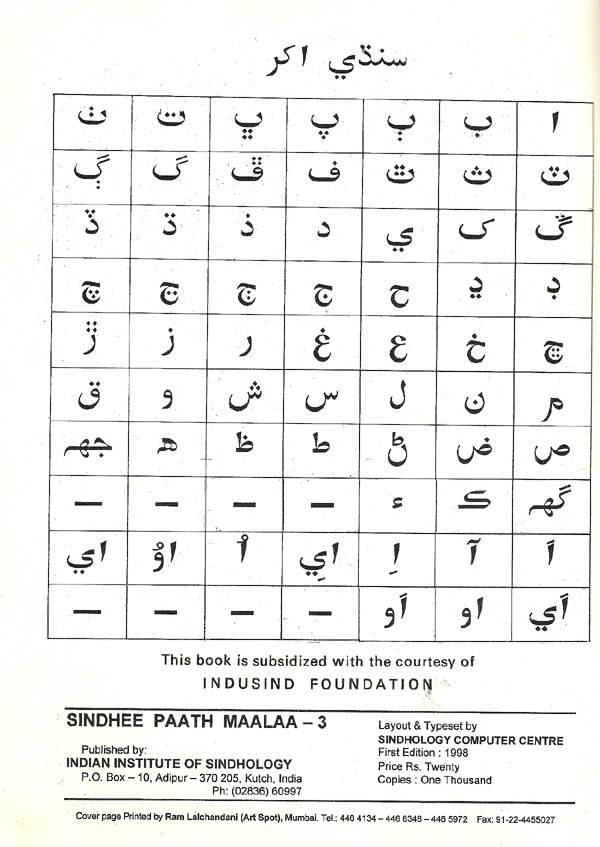 سنڌي اکر
ا ب ٻ پ ڀ ت ٺ
ٽ ث ٿ ف ڦ گ ڳ
ڱ ک ي د ذ ڌ ڏ
ڊ ڍ ح ج ڄ ڃ چ
ڇ خ ع غ ر ز ڙ
م ن ل س ش و ق
ص ض ڻ ط ظ ھ جھہ
گھہ ڪ ء — — — —
اَ آ اِ اِي اُ اوُ اي
اَي او اَو — — — —
This book is subsidized with the courtesy of
INDUSIND FOUNDATION
SINDHEE PAATH MAALAA – 3
Published by:
INDIAN INSTITUTE OF SINDHOLOGY
P.O. Box – 10, Adipur – 370 205, Kutch, India
Ph: (02836) 60997
Layout & Typeset by
SINDHOLOGY COMPUTER CENTRE
First Edition : 1998
Price Rs. Twenty
Copies : One Thousand
Cover page Printed by Ram Lalchandani (Art Spot), Mumbai. Tel.: 446 4134 – 446 6348 – 446 5972 Fax: 91-22-4455027